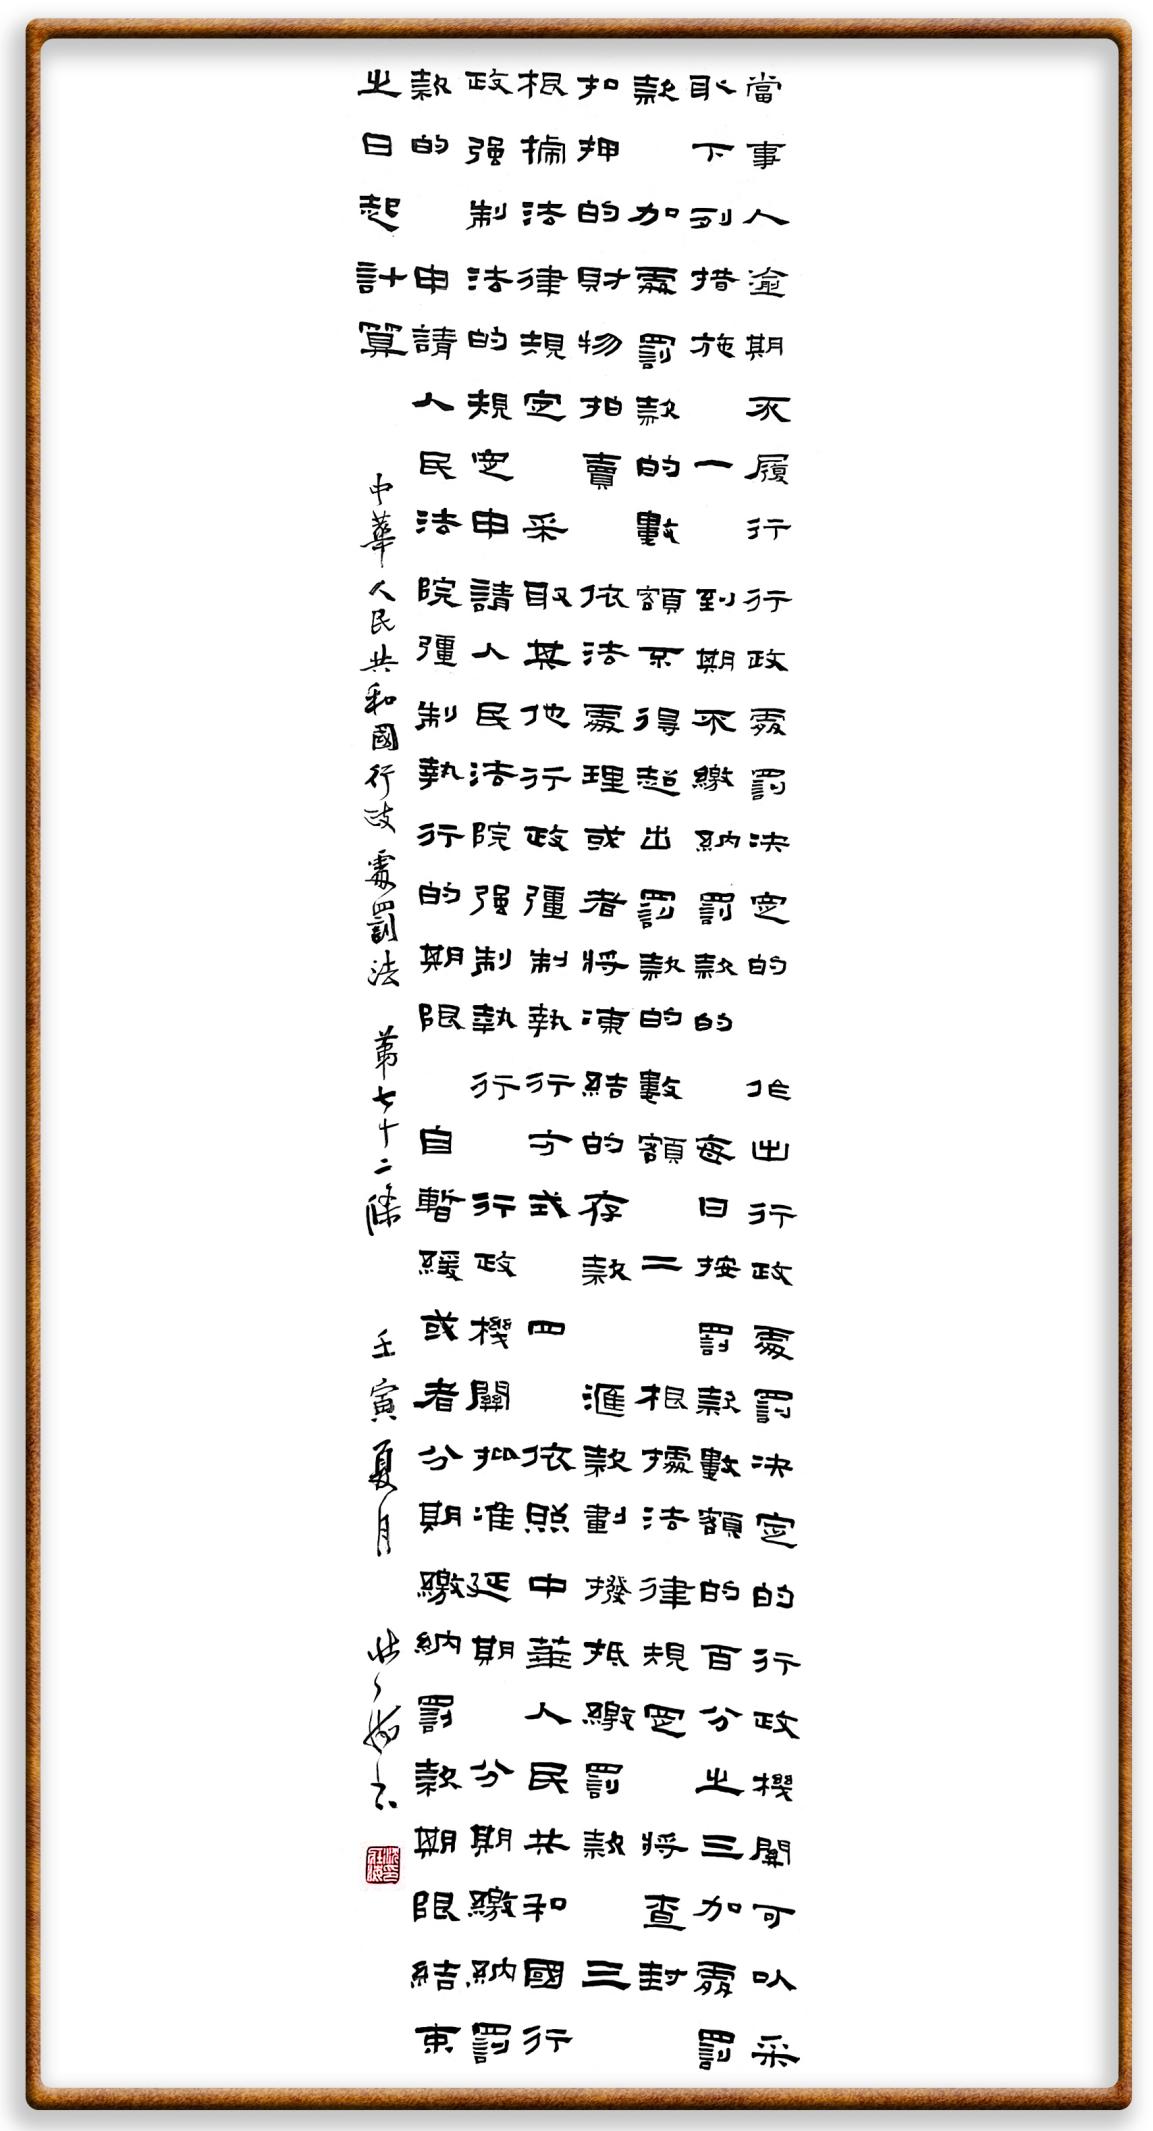 當事人逾期不履行行政處罰決定的 作出行政處罰決定的行政機關可以采
取下列措施 一 到期不繳納罰款的 每日按罰款數額的百分之三加處罰
款 加處罰款的數額不得超出罰款的數額 二 根據法律規定 將查封
扣押的財物拍賣 依法處理或者將凍結的存款 滙款劃撥抵繳罰款 三
根據法律規定 采取其他行政彊制執行方式 四 依照中華人民共和國行
政强制法的規定申請人民法院强制執行 行政機關批准延期 分期繳納罰
款的 申請人民法院彊制執行的期限 自暫緩或者分期繳納罰款期限結束
之日起計算
中華人民共和國行政處罰法 第七十二條 壬寅夏月